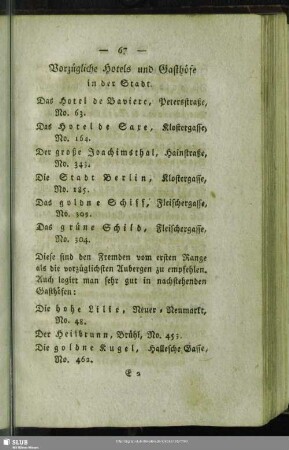 — 67 —
Vorzügliche Hotels und Gasthöfe
in der Stadt.
Das Hotel de Baviere, Petersstraße,
No. 63.
Das Hotel de Saxe, Klostergasse,
No. 164.
Der große Joachimsthal, Hainstraße,
No. 343.
Die Stadt Berlin, Klostergasse,
No. 185.
Das goldne Schiff, Fleischergasse,
No. 305.
Das grüne Schild, Fleischergasse,
No. 304.
Diese sind den Fremden vom ersten Range
als die vorzüglichsten Aubergen zu empfehlen.
Auch logirt man sehr gut in nachstehenden
Gasthöfen:
Die hohe Lilie, Neuer-Neumarkt,
No. 48.
Der Heilbrunn, Brühl, No. 453.
Die goldne Kugel, Hallesche Gasse,
No. 462.
E 2
SLUB